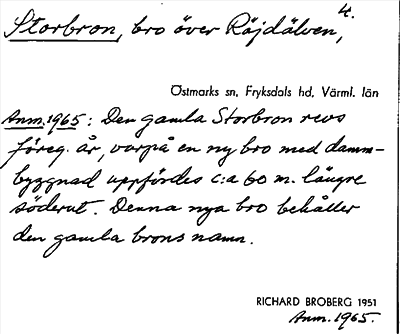 4.
Storbron, bro över Röjdälven,
Östmarks sn, Fryksdals hd, Värml. län
Anm. 1965: Den gamla Storbron revs
föreg. år, varpå en ny bro med damm-
byggnad uppfördes c:a 60 m. längre
söderut. Denna nya bro behåller
den gamla brons namn.
RICHARD BROBERG 1951
Anm. 1965.